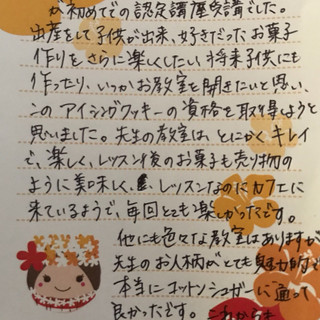 が初めての認定講座受講でした。
出産をして子供が出来、好きだったお菓子
作りをさらに楽しくしたい、将来子供にも
作ったり、いつかお教室を開きたいと思い、
このアイシングクッキーの資格を取得しようと
思いました。先生の教室は、とにかくキレイ
で、楽しく、レッスン後のお菓子も売り物の
ように美味しく、レッスンなのにカフェに
来ているようで、毎回とても楽しかったです。
他にも色々な教室はありますが
先生のお人柄がとても魅力的で
本当にコットンシュガーに通って
良かったです。これからも